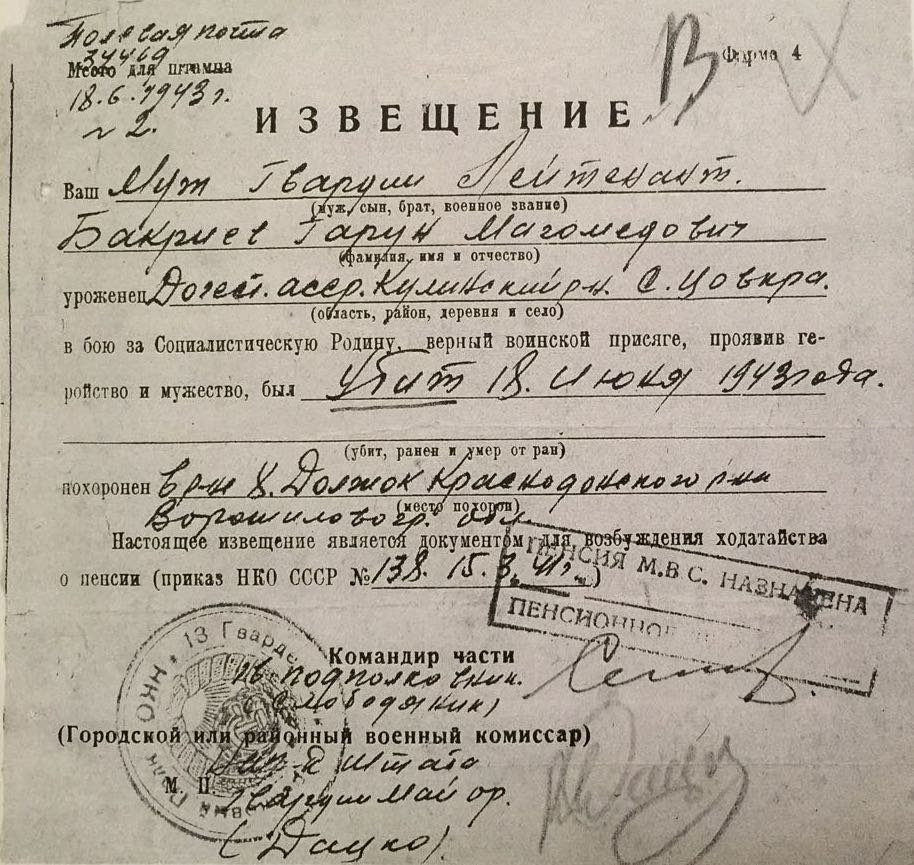 Полевая почта
34469
Место для штампа
Форма 4
18.6.1943г.
№ 2.
ИЗВЕЩЕНИЕ
Ваш Муж Гвардии Лейтенант.
(муж, сын, брат, военное звание)
Бакриев Гарун Магомедович
(фамилия, имя и отчество)
уроженец Дагест. асср. Кулинский р-н. С. Цовкра.
(область, район, деревня и село)
в бою за Социалистическую Родину, верный воинской присяге, проявив ге-
ройство и мужество, был Убит 18. Июня 1943 года.
(убит, ранен и умер от ран)
похоронен в р-не х. Должок Краснодонского р-на
(место похорон)
Ворошиловогр. обл.
Настоящее извещение является документом для возбуждения ходатайства
о пенсии (приказ НКО СССР № 138. 15.3.41г.)
ПЕНСИЯ М.В С. НАЗНАЧЕНА
ПЕНСИОННОЕ
13 Гвардей
Командир части
Гв. подполковник.
(Слободянник)
(Городской или районный военный комиссар)
Нач-к Штаба
М. П. Гвардии Майор.
(Дацко).